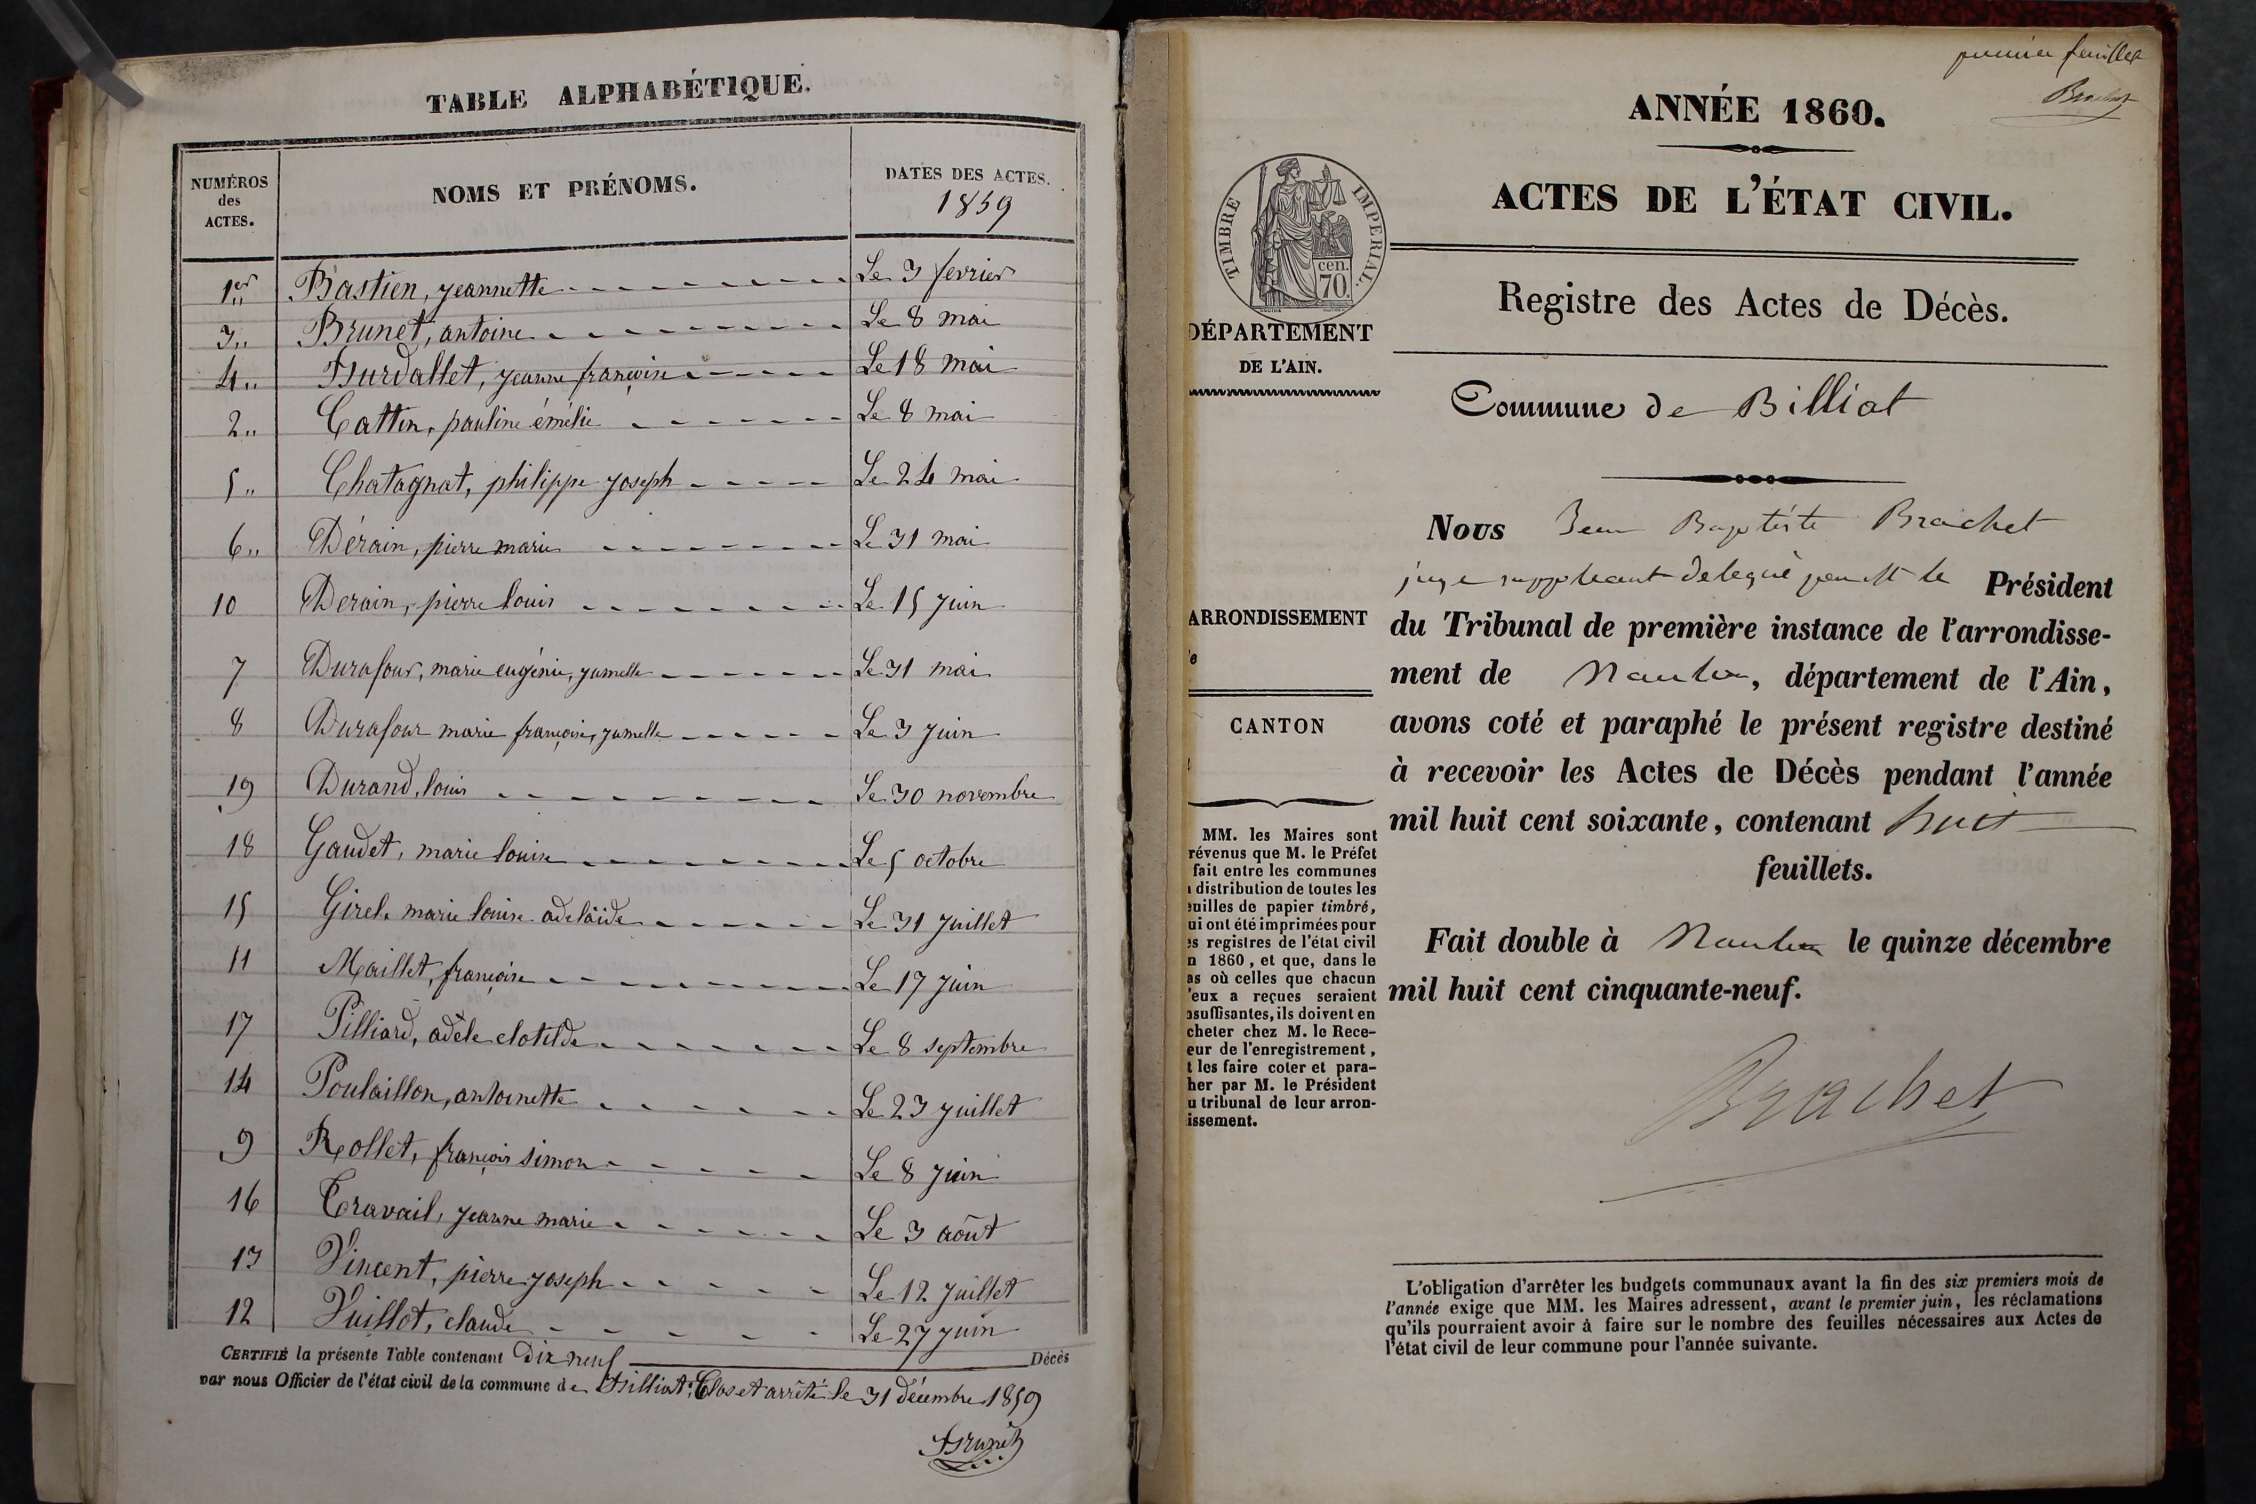 TABLE ALPHABÉTIQUE.
NUMÉROS
des
ACTES.
NOMS ET PRÉNOMS.
DATES DES ACTES.
1859
1er Bastien, jeannette Le 3 fevrier
3 Brunet, antoine Le 8 mai
4 Burdallet, jeanne françoise Le 18 mai
2 Cattin, pauline émélie Le 8 mai
5 Chatagnat, philippe joseph Le 24 mai
6 Dérain, pierre marie Le 31 mai
10 Derain, pierre louis Le 15 juin
7 Durafour, marie eugénie, jumelle Le 31 mai
8 Durafour marie françoise, jumelle Le 3 juin
19 Durand, louis Le 30 novembre
18 Gaudet, marie louise Le 5 octobre
15 Girel, marie louise adelaïde Le 31 juillet
11 Maillet, françoise Le 17 juin
17 Pilliard, adèle clotilde Le 8 septembre
14 Poulaillon, antoinette Le 23 juillet
9 Rollet, françois simon Le 8 juin
16 Travail, jeanne marie Le 3 août
13 Vincent, pierre joseph Le 12 juillet
12 Vuillot, claude Le 27 juin
CERTIFIÉ la présente Table contenant Dix neuf Décès
par nous Officier de l'état civil de la commune de Billiat. Clos et arrêté le 31 décembre 1859
Brunet
premier feuillet
Brachet
ANNÉE 1860.
ACTES DE L'ÉTAT CIVIL.
TIMBRE IMPERIAL.
cen.
70.
Registre des Actes de Décès.
DÉPARTEMENT
DE L'AIN.
Commune de Billiat
ARRONDISSEMENT
CANTON
MM. les Maires sont
révenus que M. le Préfet
fait entre les communes
distribution de toutes les
euilles de papier timbré,
ui ont été imprimées pour
es registres de l'état civil
n 1860, et que, dans le
as où celles que chacun
'eux a reçues seraient
nsuffisantes, ils doivent en
cheter chez M. le Rece-
eur de l'enregistrement,
t les faire coter et para-
her par M. le Président
u tribunal de leur arron-
issement.
Nous Jean Baptiste Brachet
juge suppleant delegué par Mr le Président
du Tribunal de première instance de l'arrondisse-
ment de Nantua, département de l'Ain,
avons coté et paraphé le présent registre destiné
à recevoir les Actes de Décès pendant l'année
mil huit cent soixante, contenant huit
feuillets.
Fait double à Nantua le quinze décembre
mil huit cent cinquante-neuf.
Brachet
L'obligation d'arrêter les budgets communaux avant la fin des six premiers mois de
l'année exige que MM. les Maires adressent, avant le premier juin, les réclamations
qu'ils pourraient avoir à faire sur le nombre des feuilles nécessaires aux Actes de
l'état civil de leur commune pour l'année suivante.